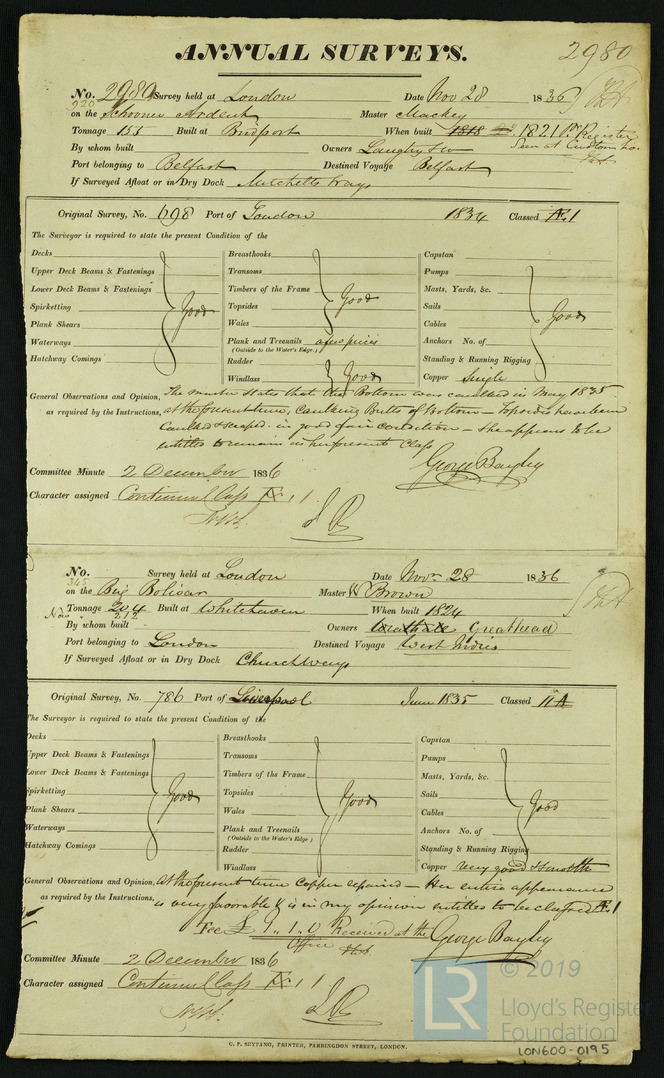 ANNUAL SURVEYS.
2980
No. 2980 Survey held at London Date Nov 28 1836
920
on the Schooner Ardent Master Mackey
Tonnage 155 Built at Bridport When built 1818 1821 pr Register
By whom built Owners Langtry & Co Seen at Custom Ho.
Port belonging to Belfast Destined Voyage Belfast
If Surveyed Afloat or in Dry Dock Mitchells Ways
Original Survey, No. 698 Port of London 1834 Classed Æ 1
The Surveyor is required to state the present Condition of the
Decks Breasthooks Capstan
Upper Deck Beams & Fastenings Transoms Pumps
Lower Deck Beams & Fastenings Timbers of the Frame Masts, Yards, &c.
Spirketting Good Topsides Good Sails Good
Plank Shears Wales Cables
Waterways Plank and Treenails Anchors No. of
(Outside to the Water's Edge.)
Hatchway Comings Rudder Standing & Running Rigging
Windlass Good Copper Single
General Observations and Opinion, The master states that the Bottom was caulked in May 1835
as required by the Instructions, at the present time, Caulking Butts of Bottom – Topsides have been
Caulked & scraped. in good & fair condition – She appears to be
entitled to remain in her present Class
George Bayley
Committee Minute 2 December 1836
Character assigned Continued Class Æ 1
No. Survey held at London Date Novr 28 1836
345
on the Brig Bolivar Master W Brown
Tonnage 204 Built at Whitehaven When built 1824
Now 212
By whom built Owners Greathead
Port belonging to London Destined Voyage West Indies
If Surveyed Afloat or in Dry Dock Churchways
Original Survey, No. 786 Port of Liverpool June 1835 Classed 11 A
The Surveyor is required to state the present Condition of the
Decks Breasthooks Capstan
Upper Deck Beams & Fastenings Transoms Pumps
Lower Deck Beams & Fastenings Timbers of the Frame Masts, Yards, &c.
Spirketting Good Topsides Good Sails Good
Plank Shears Wales Cables
Waterways Plank and Treenails Anchors No. of
(Outside to the Water's Edge)
Hatchway Comings Rudder Standing & Running Rigging
Windlass Copper very good & smooth
General Observations and Opinion, At the present time Copper repaired – Her entire appearance
as required by the Instructions, is very favorable & is in my opinion entitled to be classed Æ 1
Fee £ 1.. 1.. 0 Received at the
Office
George Bayley
Committee Minute 2 December 1836
Character assigned Continued Class Æ 1
LR © 2019
Lloyd's Register
Foundation
C. F. SEYFANG, PRINTER, FARRINGDON STREET, LONDON.
LON600-0195